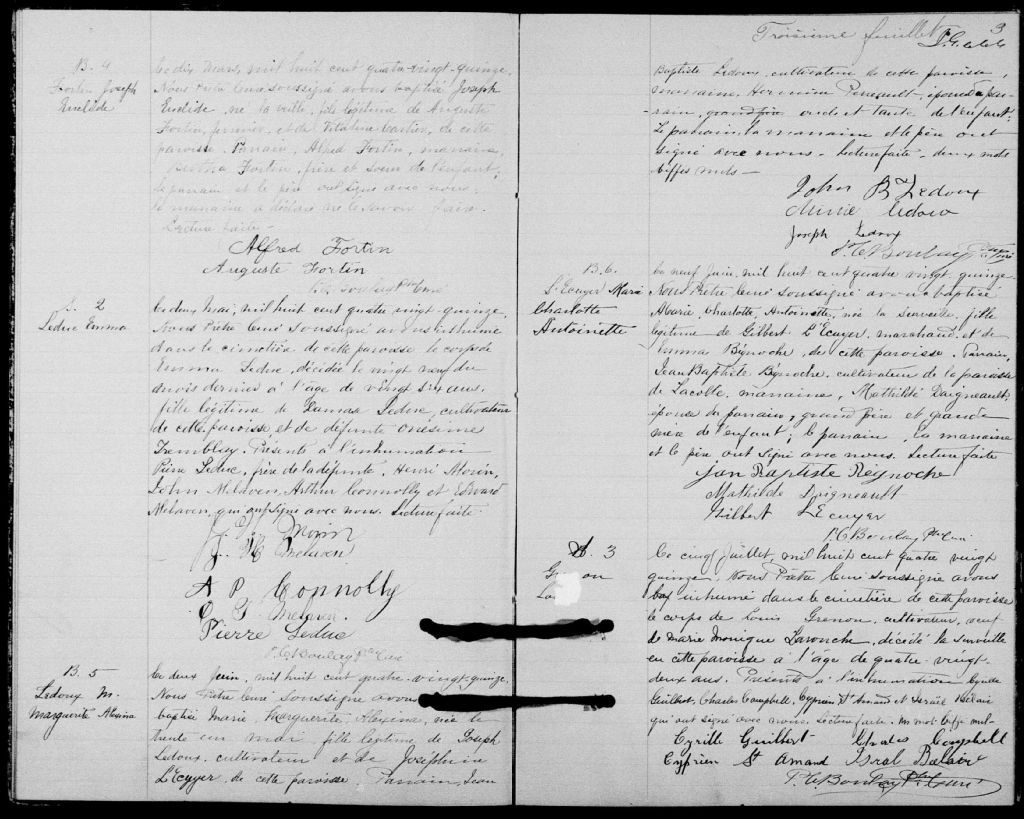 B. 4
Fortin Joseph
Euclide
Le dix Mars, mil huit cent quatre-vingt-quinze,
Nous Prêtre Curé soussigné avons baptisé Joseph
Euclide, né la veille, fils légitime de Auguste
Fortin, fermier, et de Vitaline Cantin, de cette
paroisse. Parrain, Alfred Fortin, marraine,
Fortin, frère et soeur de l'enfant,
le parrain et le père ont signé avec nous,
la marraine a déclaré ne le savoir faire.
Lecture faite
Alfred Fortin
Auguste Fortin
S. 2
Leduc Emma
Le deux Mai, mil huit cent quatre vingt quinze,
Nous Prêtre Curé soussigné avons inhumé
dans le cimetière de cette paroisse le corps de
Emma Leduc, décédée le vingt neuf du
mois dernier à l'âge de vingt six ans,
fille légitime de Damase Leduc, cultivateur
de cette paroisse et de défunte Onesime
Tremblay. Présents à l'inhumation
Pierre Leduc, frère de la défunte, Henri Morin,
John McLaven, Arthur Connolly et Edward
McLaven, qui ont signé avec nous. Lecture faite.
Morin
McLaven
A P Connolly
McLaven.
Pierre Leduc
B. 5
Ledoux M.
Marguerite Alexina
Le deux Juin, mil huit cent quatre-vingt-quinze,
Nous Prêtre Curé soussigné avons
baptisé Marie, Marguerite, Alexina, née le
trente un mai fille légitime de Joseph
Ledoux, cultivateur et de Joséphine
L'Ecuyer, de cette paroisse, Parrain, Jean
3
Troisième feuillet
Baptiste Ledoux, cultivateur de cette paroisse,
marraine, Hermine épouse du par-
rain, grand père oncle et tante de l'enfant;
Le parrain, la marraine et le père ont
signé avec nous. Lecture faite. deux mots
biffés nuls
John B Ledoux
Ledoux
Joseph Ledoux
B. 6.
L'Ecuyer Marie
Charlotte
Antoinette
Le neuf Juin, mil huit cent quatre vingt quinze
Nous Prêtre Curé soussigné avons baptisé
Marie, Charlotte, Antoinette, née la surveille, fille
légitime de Gilbert L'Ecuyer, marchand, et de
Emma Bynoche, de cette paroisse. Parrain,
Jean Baptiste Bynoche, cultivateur de la paroisse
de Lacolle, marraine, Mathilde Daigneault,
épouse du parrain, grand père et grande
mère de l'enfant; le parrain, la marraine
et le père ont signé avec nous. Lecture faite
Jan Baptiste Reynoche
Mathilde Daigneault
Gilbert L'Ecuyer
P. C Boulay Ptre Curé
S. 3
Le cinq Juillet, mil huit cent quatre vingt
quinze, Nous Prêtre Curé soussigné avons
bap inhumé dans le cimetière de cette paroisse
le corps de Louis Grenon, cultivateur, veuf
de Marie Monique Larouche, décédé la surveille
en cette paroisse à l'âge de quatre-vingt-
deux ans. Présents à l'inhumation Cyrille
Guilbert, Charles Campbell, Cyprien St Amand et Israël Bélair
qui ont signé avec nous. Lecture faite. Un mot biffé nul-
Cyrille Guilbert Charles Campbell
Cyprien St Amand Isral Balair
P. C Boulay Ptre Curé